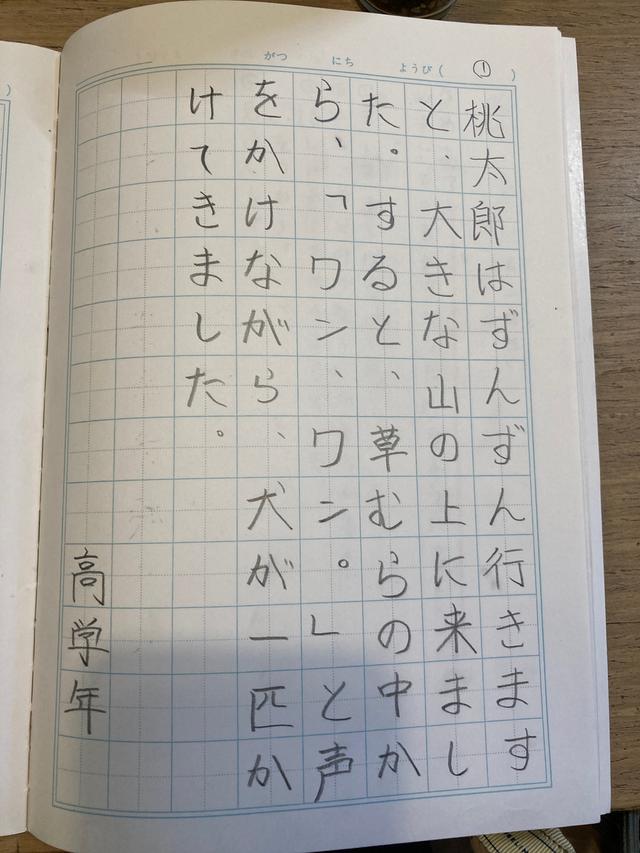 がつ にち ようび( ① )
桃太郎はずんずん行きます
と、大きな山の上に来まし
た。すると、草むらの中か
ら、「ワン、ワン。」と声
をかけながら、犬が一匹か
けてきました。
高学年
)